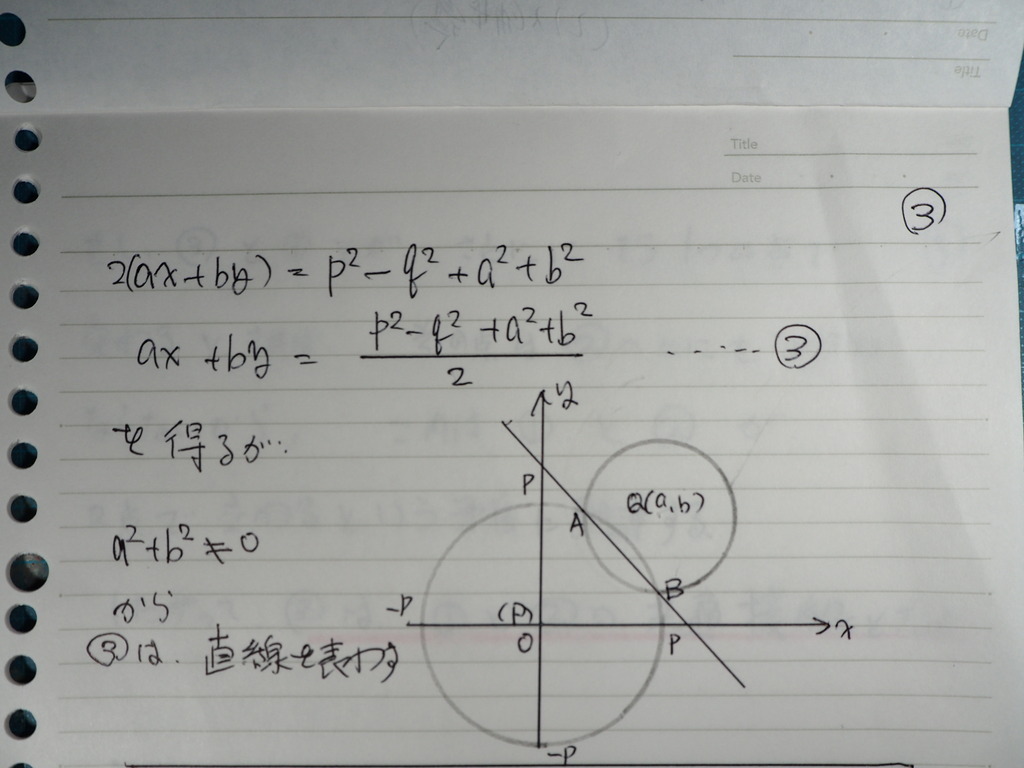 Title
Date
③
2(ax+by) = p²-q²+a²+b²
ax+by = (p²-q²+a²+b²)/2 ・・・・・ ③
を得るが…
a²+b²≠0
から
③は、直線を表わす
y
P
Q(a,b)
A
B
-P
(P)
O
P
x
-P